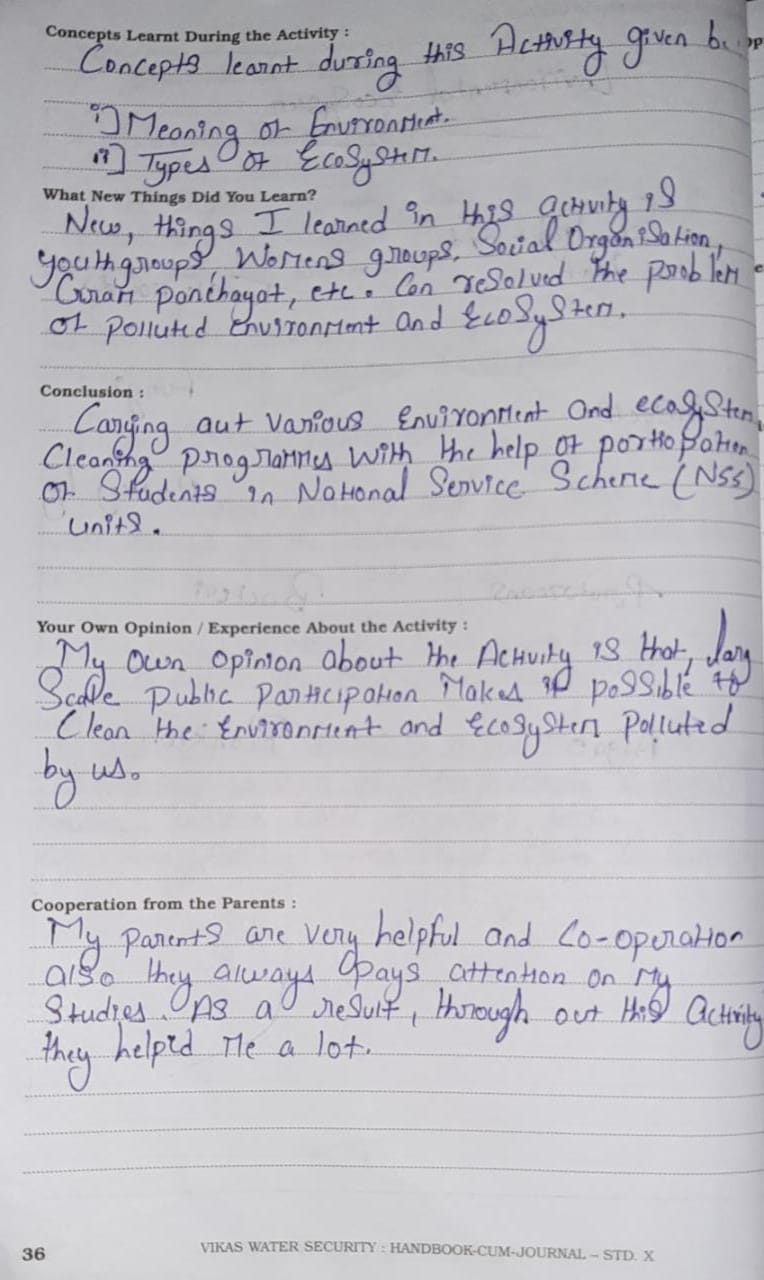 Concepts Learnt During the Activity :
Concepts learnt during this Activity given
i] Meaning of Environment.
ii] Types of Ecosystem.
What New Things Did You Learn?
New, things I learned in this activity is
youth groups, Womens groups, Social Organisation,
Gram Panchayat, etc. Can resolved the problem
of polluted environment and Ecosystem.
Conclusion :
Carying aut various Environment and ecosystem
Cleaning programmes with the help of participation
of Students in National Service Scheme (NSS)
units.
Your Own Opinion / Experience About the Activity :
My own opinion about the Activity is that, larg
Scale public participation makes it possible to
Clean the Environment and Ecosystem polluted
by us.
Cooperation from the Parents :
My parents are very helpful and Co-operation
also they always pays attention on my
Studies. As a result, through out this activity
they helped me a lot.
36
VIKAS WATER SECURITY : HANDBOOK-CUM-JOURNAL – STD. X